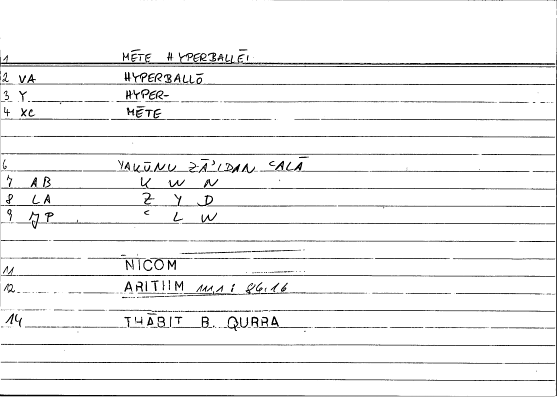 1 MĒTE HYPERBALLĒI
2 VA HYPERBALLŌ
3 Y HYPER-
4 XC MĒTE
6 YAKŪNU ZĀ'IDAN ʿALĀ
7 AB K W N
8 LA Z Y D
9 JP ʿ L W
11 NICOM
12 ARITHM 111,1 : 86,16
14 THĀBIT B. QURRA